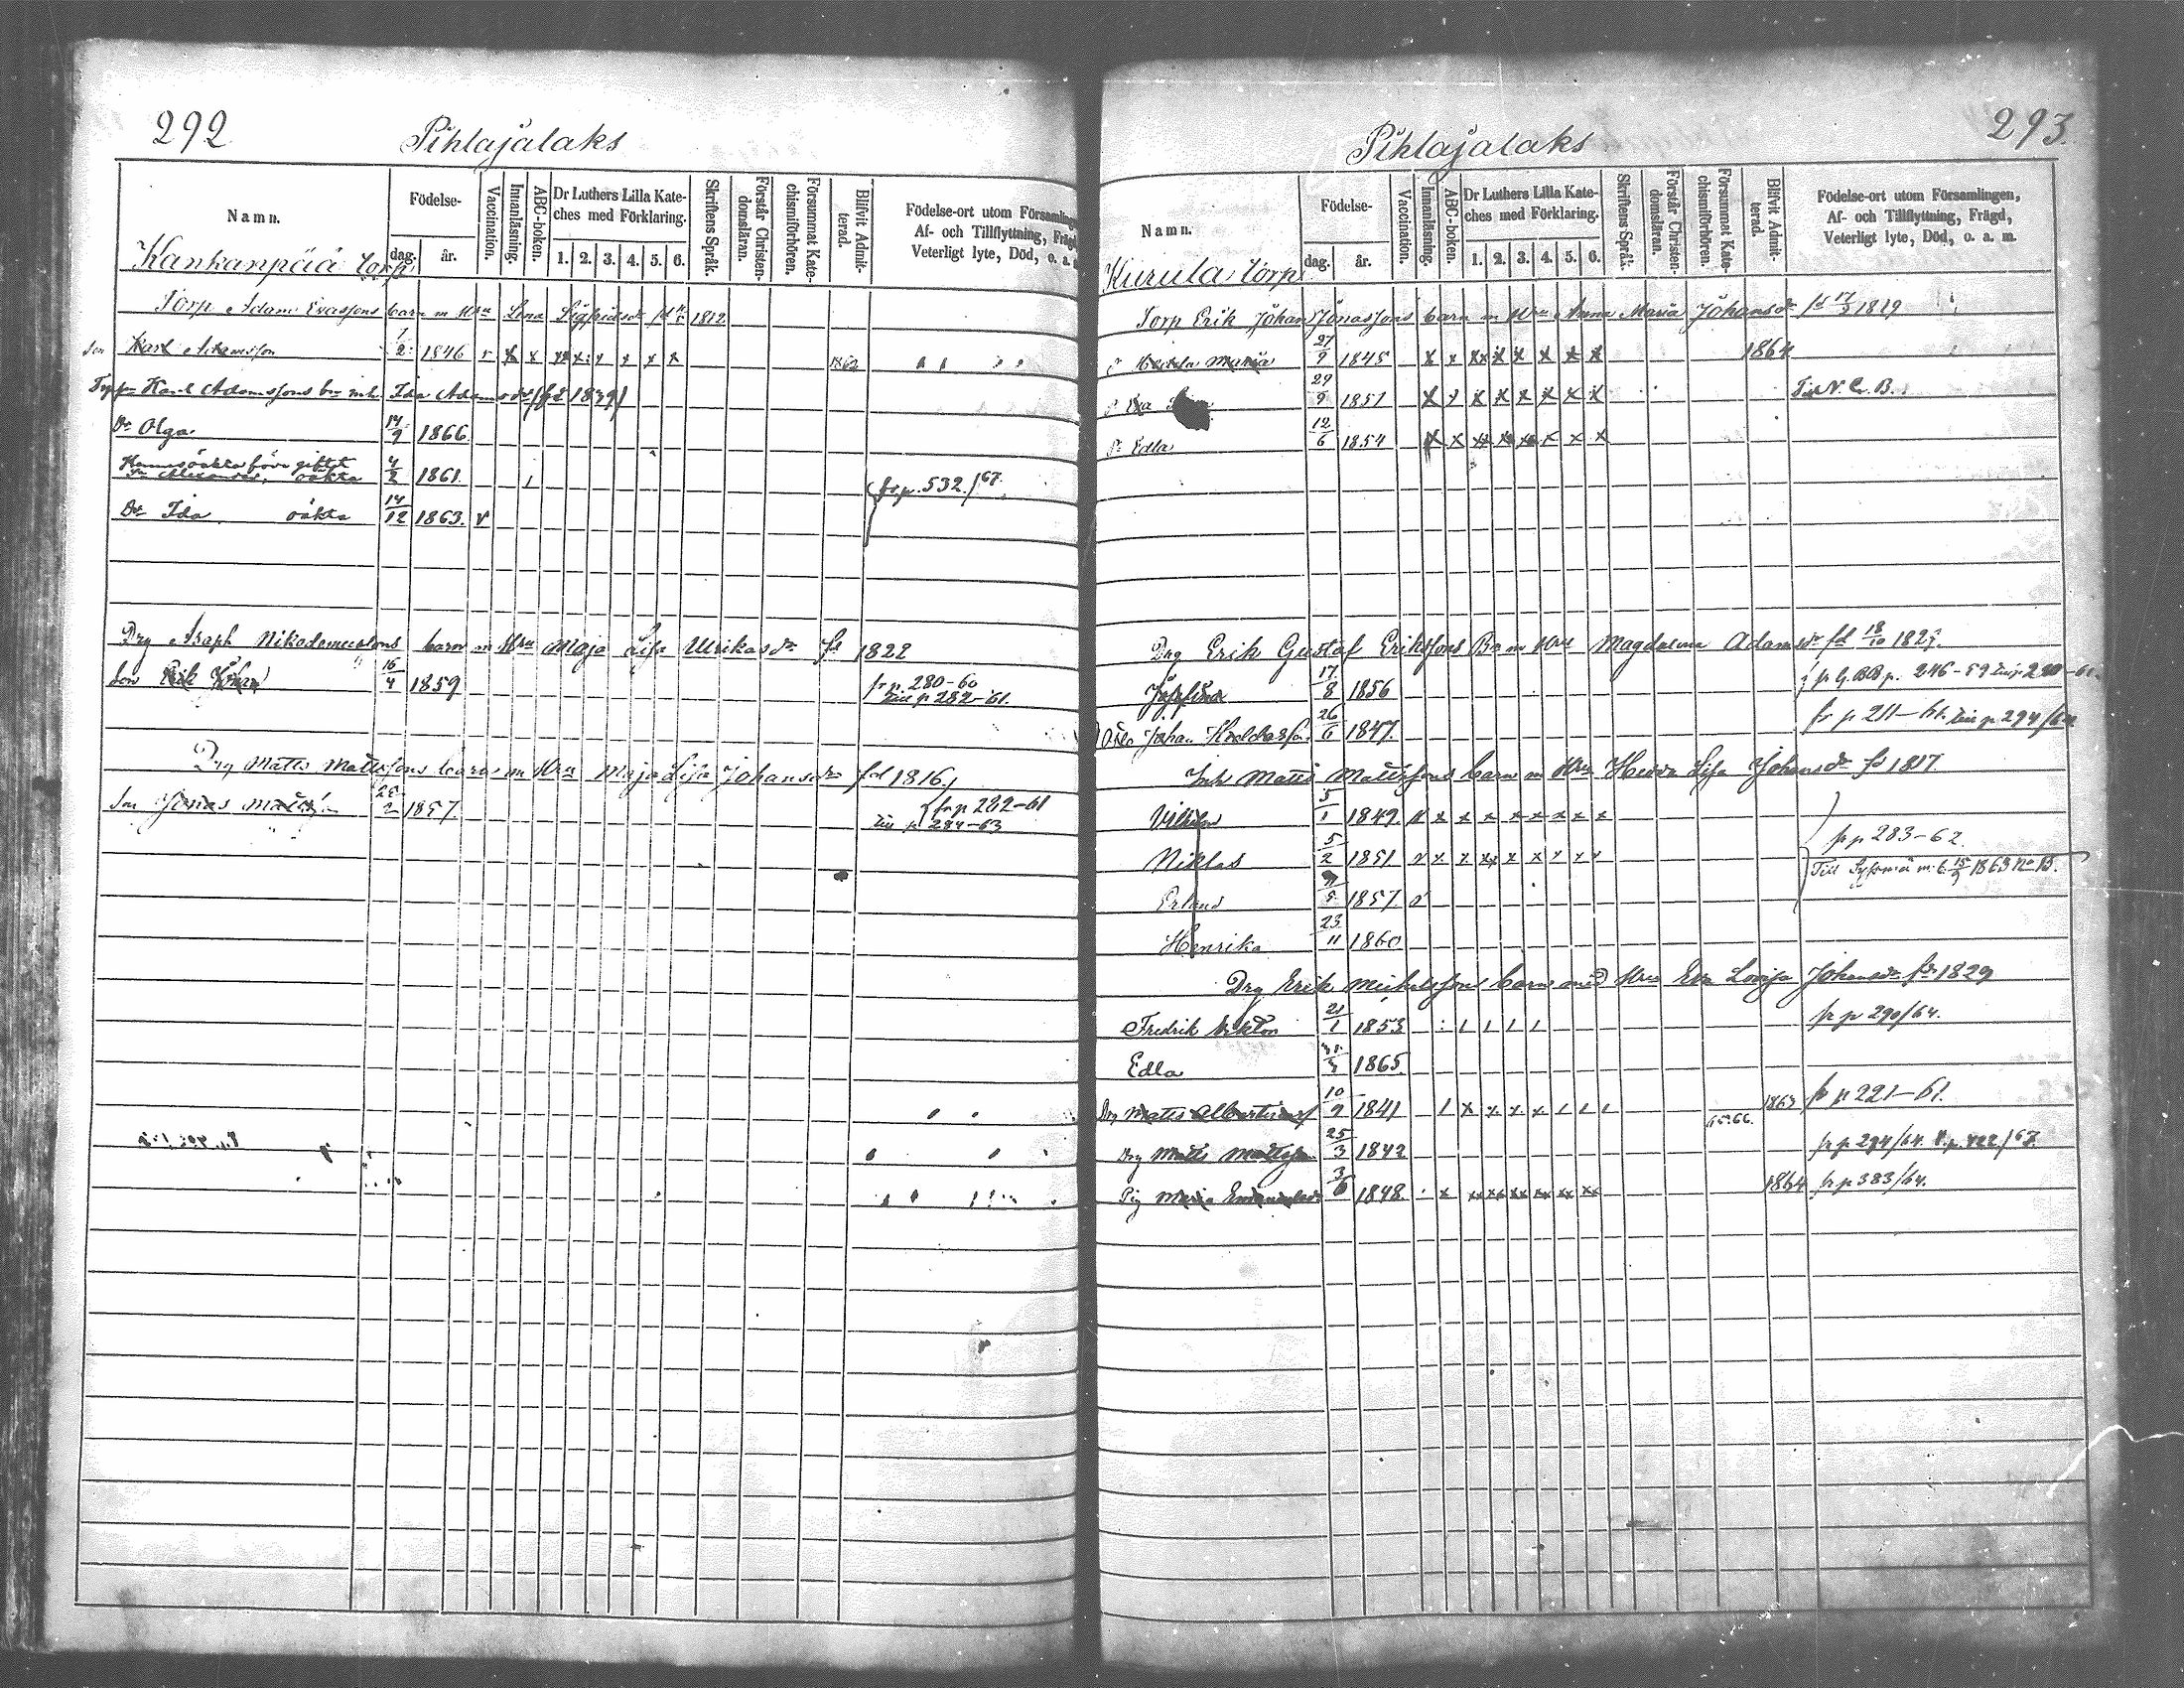 292
Pihlajalaks
Namn.
Födelse-
dag.
år.
Vaccination.
Innanläsning.
ABC-boken.
Dr Luthers Lilla Kate-
ches med Förklaring.
1. 2. 3. 4. 5. 6.
Skriftens Språk.
Förstår Christen-
domsläran.
Försummat Kate-
chismiförhören.
Blifvit Admit-
terad.
Födelse-ort utom Församlingen,
Af- och Tillflyttning, Frägd,
Veterligt lyte, Död, o. a. m.
Kankanpää torp
Torp Adam barn m Hru Lena Sigfridsdr fd 1812
son Karl Adamsson 1/2 1846 x x x x x x x 1862
Karl Adamssons bn mh Ida Adamsdr (fd 1839)
Dr Olga 14/9 1866
Sn Alexander, oäkta 4/2 1861 fr p. 532./67.
Dr Ida oäkta 14/12 1863. v
Drg Asaph Nikodemussons barn m Hru Maja Lisa Ulrikasdr fd 1822
son Erik Johan 16/4 1859 fr p 280-60
till p 282-61.
Drg Matts Mattssons barn m Hru Maja Lisa Johansdr fd 1816
son Jonas 1857. fr p 282-61
till p 284-63
293.
Pihlajalaks
Namn.
Födelse-
dag.
år.
Vaccination.
Innanläsning.
ABC-boken.
Dr Luthers Lilla Kate-
ches med Förklaring.
1. 2. 3. 4. 5. 6.
Skriftens Språk.
Förstår Christen-
domsläran.
Försummat Kate-
chismiförhören.
Blifvit Admit-
terad.
Födelse-ort utom Församlingen,
Af- och Tillflyttning, Frägd,
Veterligt lyte, Död, o. a. m.
Kurula torp
Torp Erik Johan Jonassons barn m Hru Anna Maria Johansdr fd 17/3 1819
Hedda Maria 27/9 1845 x x x x x x x x 1864
Eva 29/9 1851 x x x x x x x x Till N. C. B.
Edla 12/6 1854 x x x x x x x x
Drg Erik Gustaf Erikssons Bn m Hru Magdalena Adamsdr fd 18/10
Josefina 17/8 1856 fr G. BB p. 246-59
Johan 26/6 1847. fr p 211- till p 294/64
Inh Matts Mattssons barn m Hru Hedda Lisa Johansdr fd 1817.
Vilhelm 5/1 1849. v x x x x x x x x
Niklas 5/2 1851 v x x x x x x x x fr p 283-62.
Till Sysmä m. b. 15/9 1863 No 13.
Erland 1857 v
Henrika 23/11 1860
Drg Erik Michelssons barn med Hru Eva Lovisa Johansdr fd 1829
Fredrik Viktor 21/1 1853 fr p 290/64.
Edla 1865.
Drg Matts Albertsson 10/9 1841 1863 fr p 221-61.
65.66.
Drg Matts Mattsson 25/3 1842 fr p 294/64. T. p. 422/67.
Pig Maria Emanuelsdr 3/6 1848. x xx xx xx xx xx xx 1864 fr p 383/64.